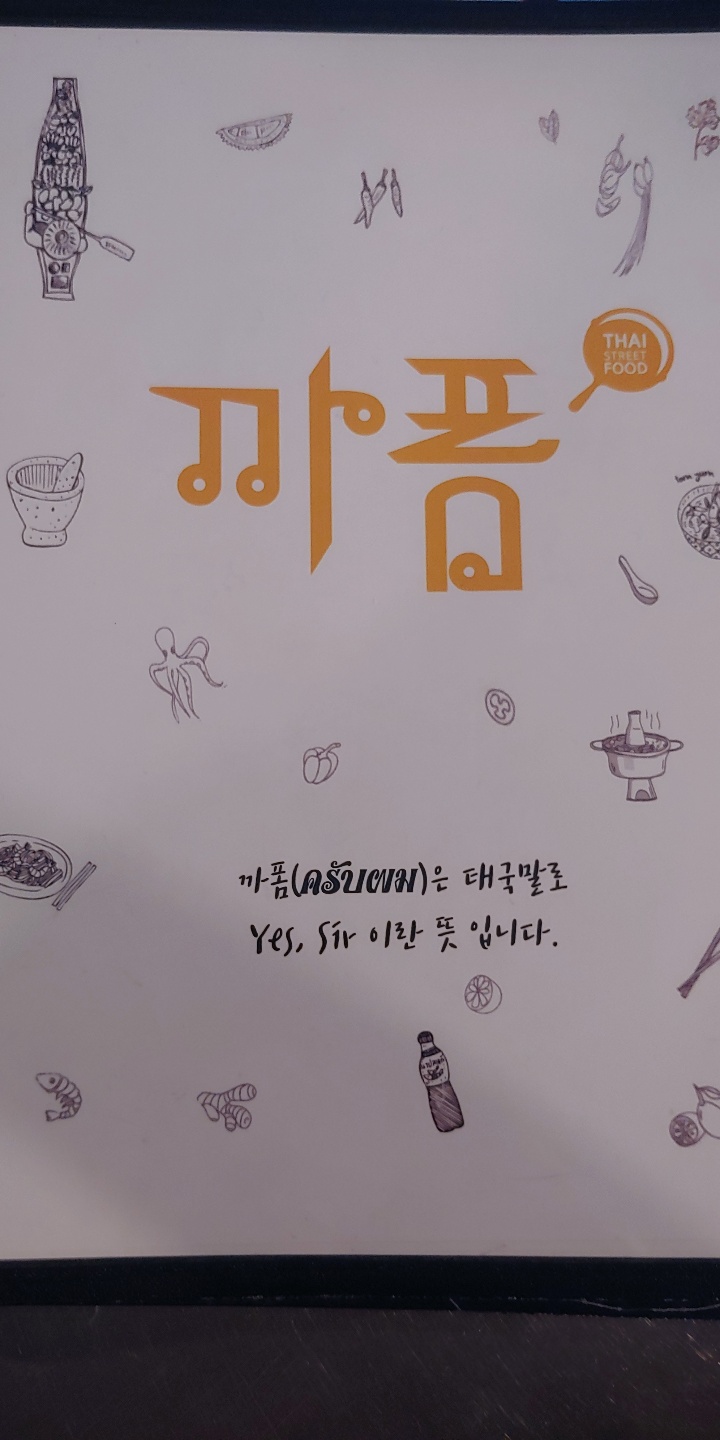 까폼
THAI
STREET
FOOD
tom yum
까폼(ครับผม)은 태국말로
Yes, Sir 이란 뜻 입니다.